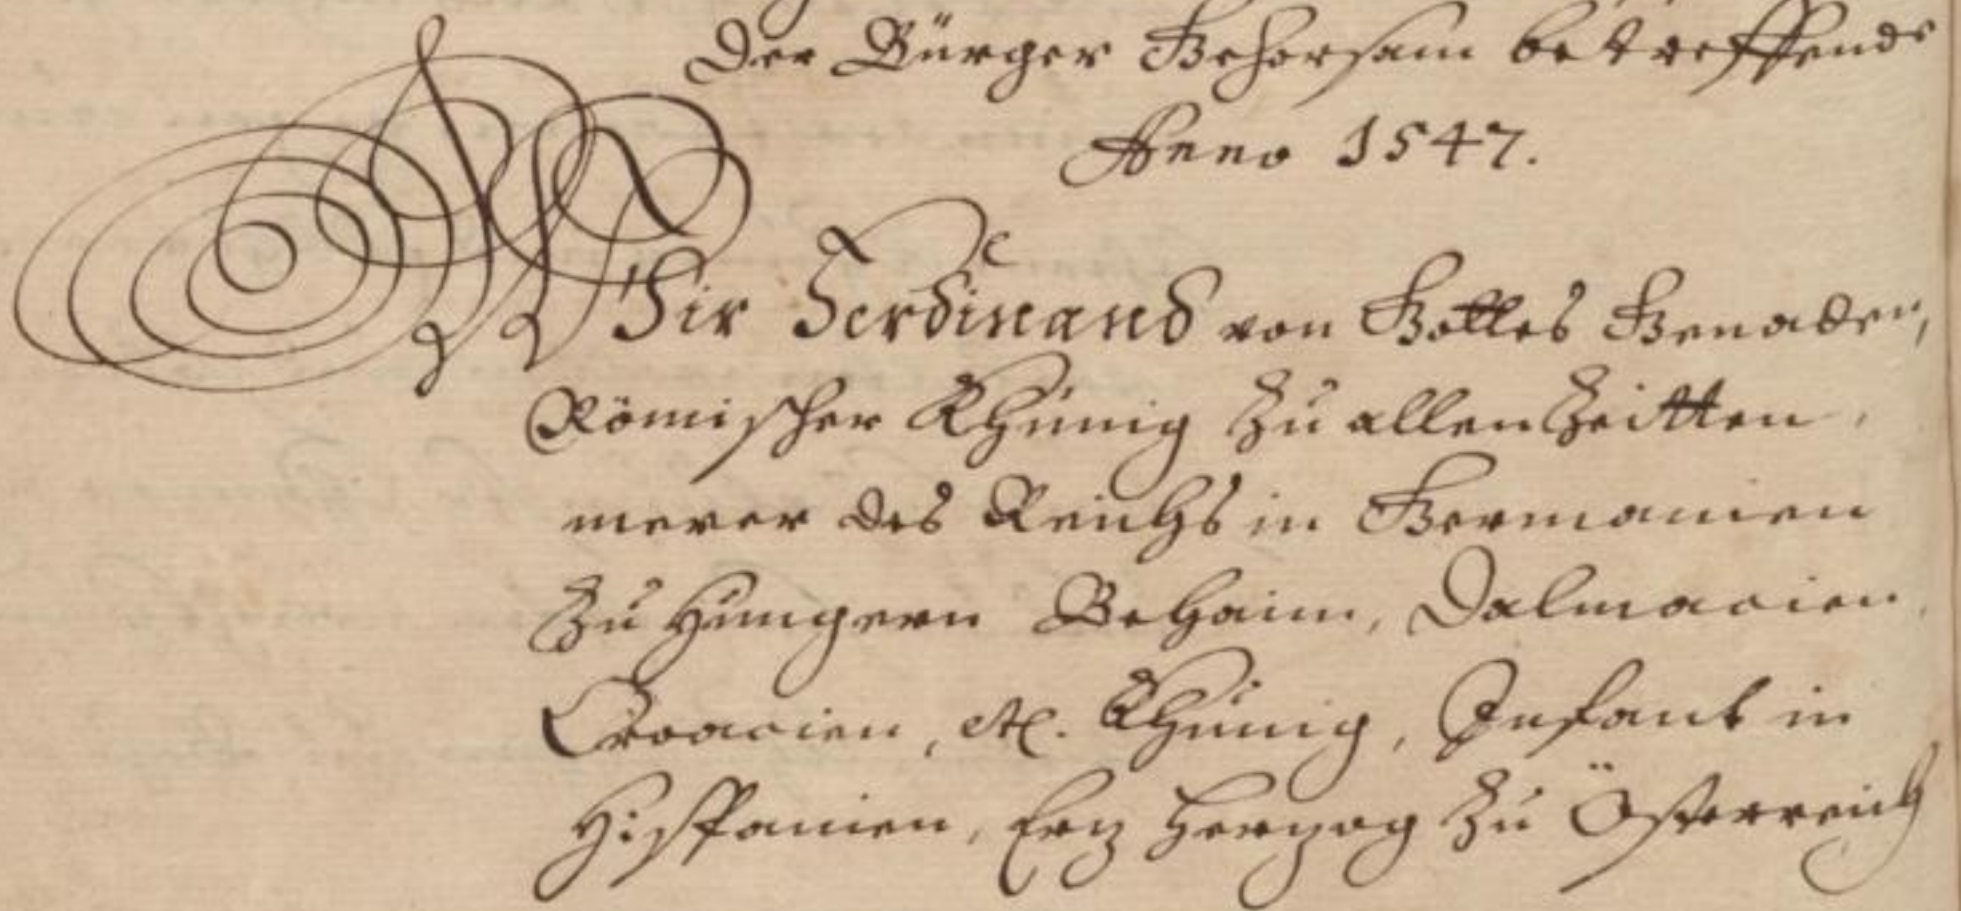 Der Bürger Gehorsam betreffende
Anno 1547.
Wir Ferdinand von Gottes Genaden,
Römischer Khünig zu allen Zeitten,
merer des Reichs in Germanien
zu Hungern Behaim, Dalmacien,
Croacien, etc. Khünig, Infant in
Hispanien, Erz Herzog zu Österreich